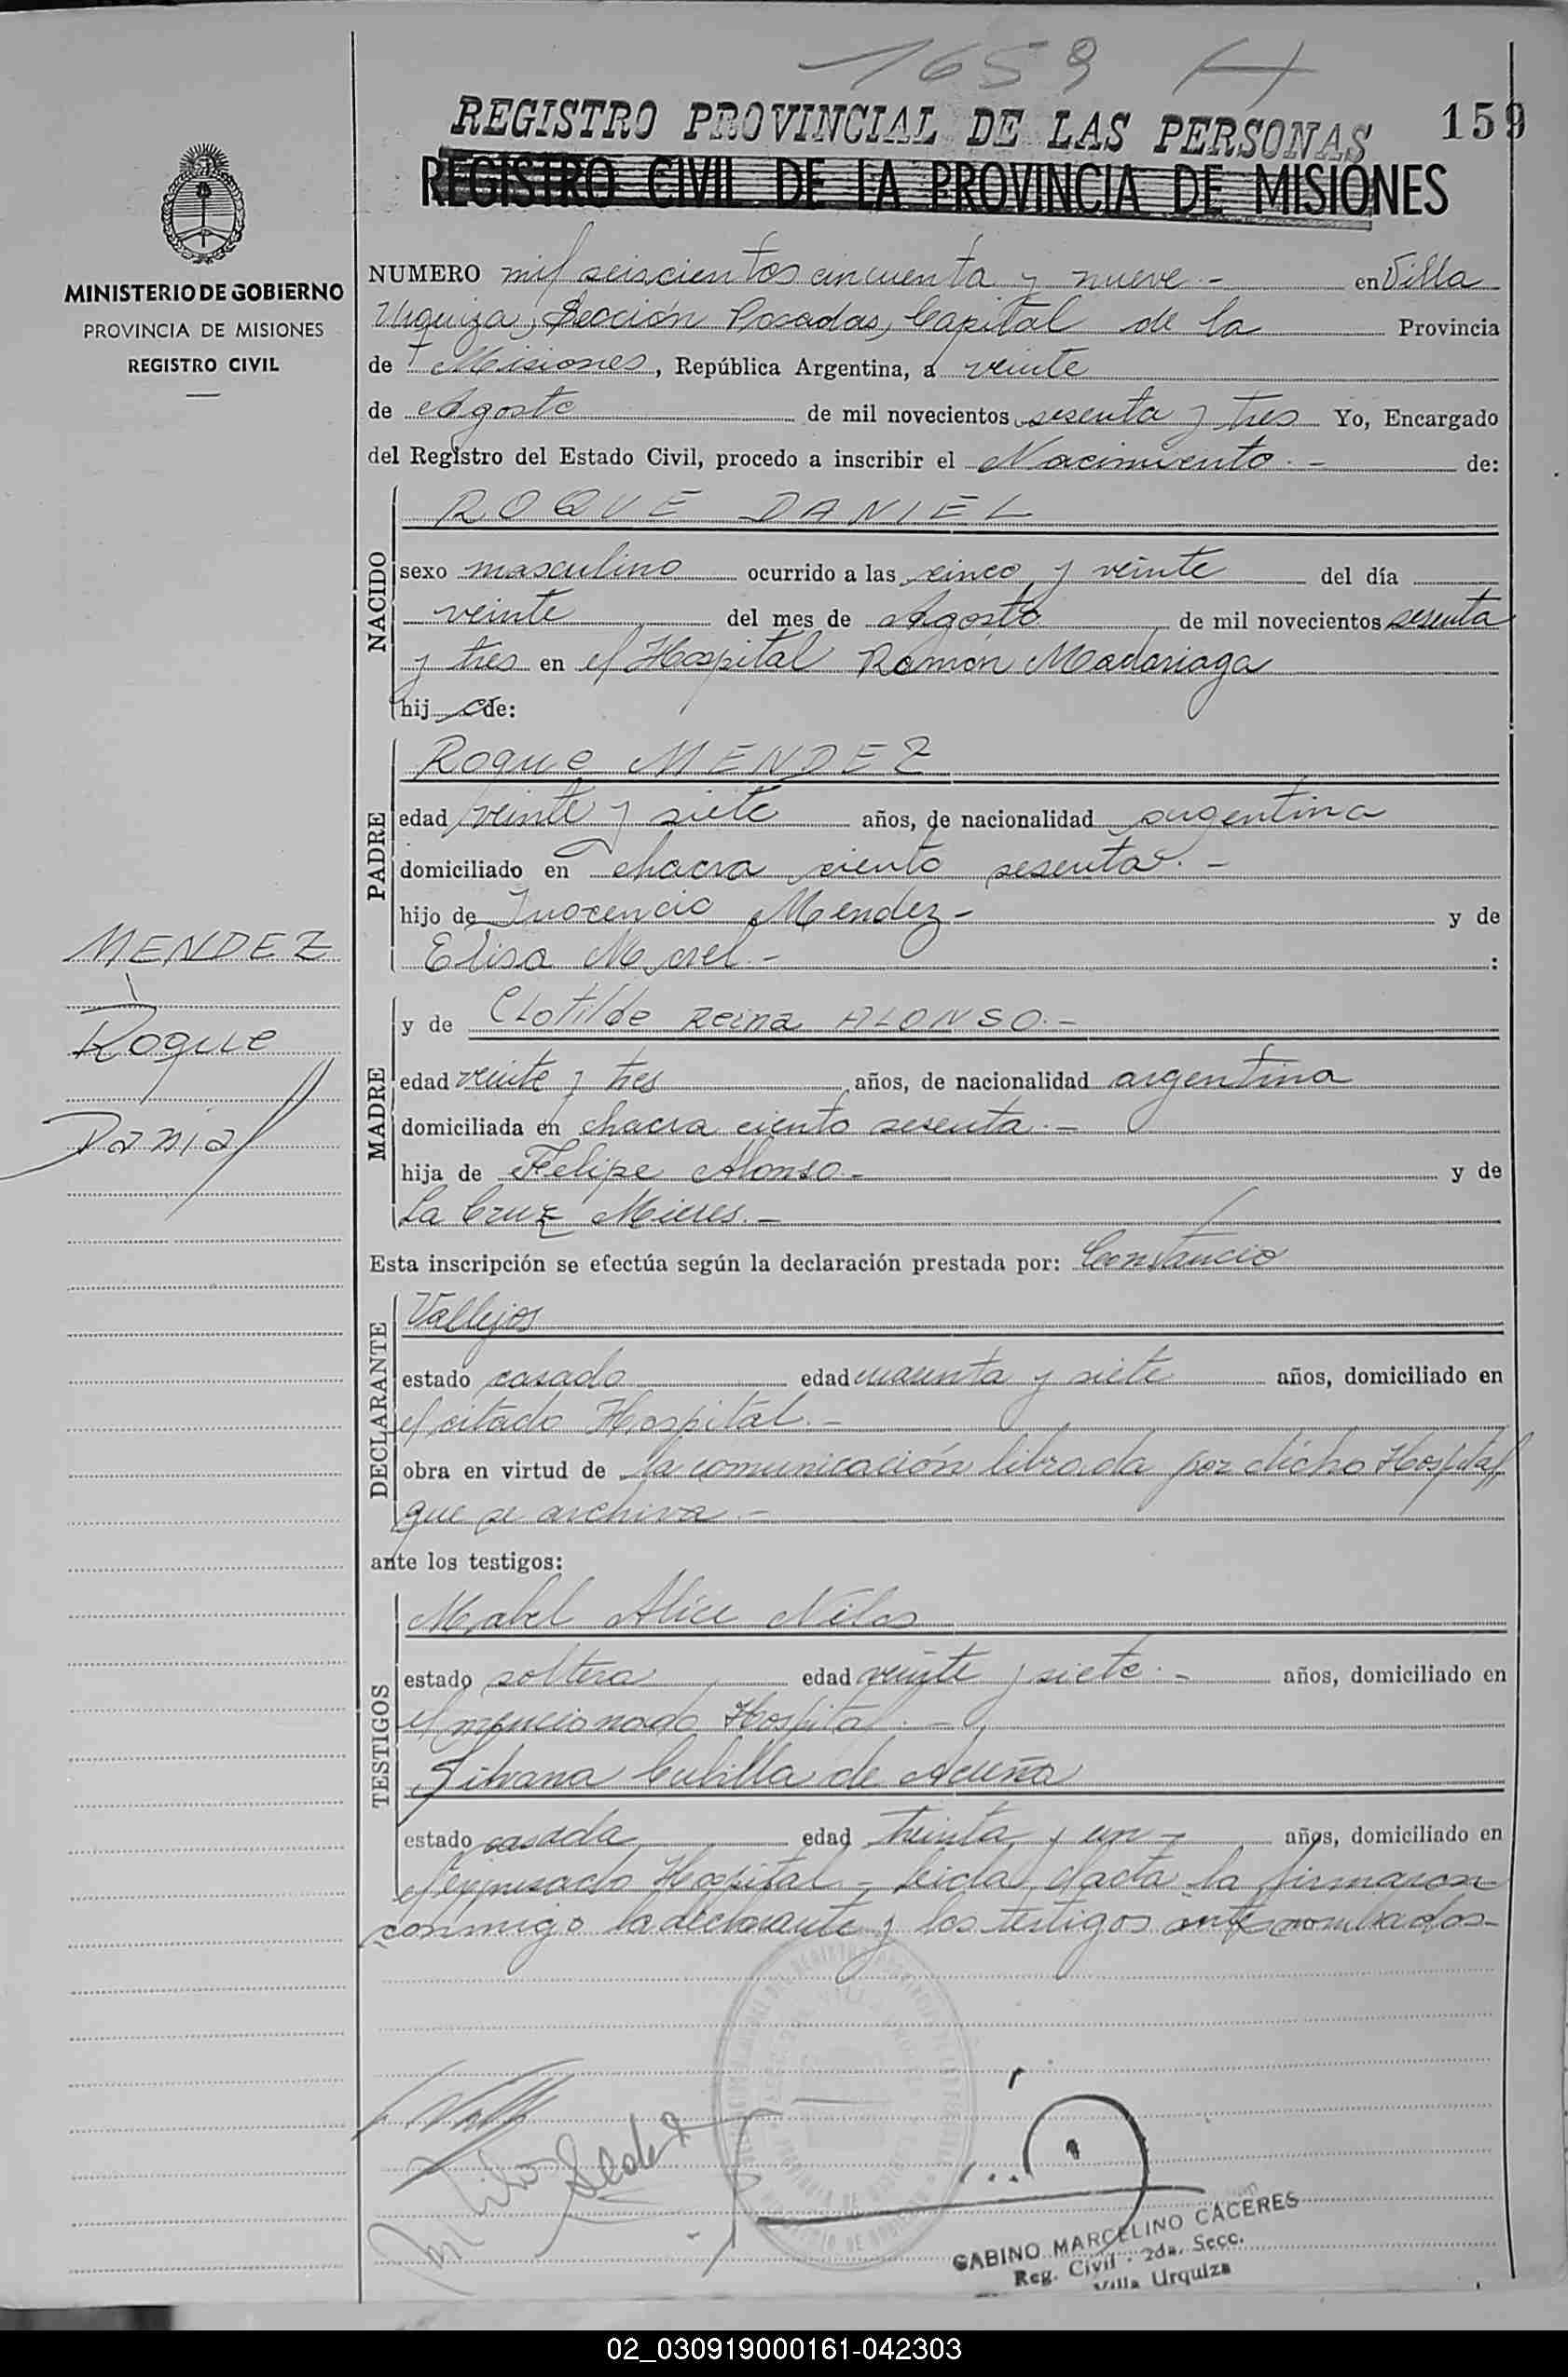 1659
159
REGISTRO PROVINCIAL DE LAS PERSONAS
REGISTRO CIVIL DE LA PROVINCIA DE MISIONES
MINISTERIO DE GOBIERNO
PROVINCIA DE MISIONES
REGISTRO CIVIL
NUMERO mil seiscientos cincuenta y nueve.- en Villa
Urquiza, Sección Posadas, Capital de la Provincia
de Misiones, República Argentina, a veinte
de Agosto de mil novecientos sesenta y tres Yo, Encargado
del Registro del Estado Civil, procedo a inscribir el Nacimiento.- de:
NACIDO
ROQUE DANIEL
sexo masculino ocurrido a las cinco y veinte del día
veinte del mes de Agosto de mil novecientos sesenta
y tres en el Hospital Ramon Madariaga
hijo de:
PADRE
Roque MENDEZ
edad veinte y siete años, de nacionalidad argentina
domiciliado en chacra ciento sesenta.-
hijo de Inocencio Mendez- y de
Elisa Morel.- :
MENDEZ
Roque
Daniel
MADRE
y de Clotilde Reina ALONSO.-
edad veinte y tres años, de nacionalidad argentina
domiciliada en chacra ciento sesenta.-
hija de Felipe Alonso.- y de
La Cruz Mieres.-
Esta inscripción se efectúa según la declaración prestada por: Constancio
DECLARANTE
Vallejos
estado casado edad cuarenta y siete años, domiciliado en
el citado Hospital.-
obra en virtud de la comunicación librada por dicho Hospital
que se archiva.-
ante los testigos:
TESTIGOS
Mabel Alice
estado soltera edad veinte y siete.- años, domiciliado en
el mencionado Hospital.-
Silvana Cubilla de Acuña
estado casada edad treinta y un- años, domiciliado en
el expresado Hospital - leida el acta la firmaron
conmigo la declarante y los testigos antenombrados-
GABINO MARCELINO CACERES
Reg. Civil - 2da. Secc.
Villa Urquiza
02_030919000161-042303